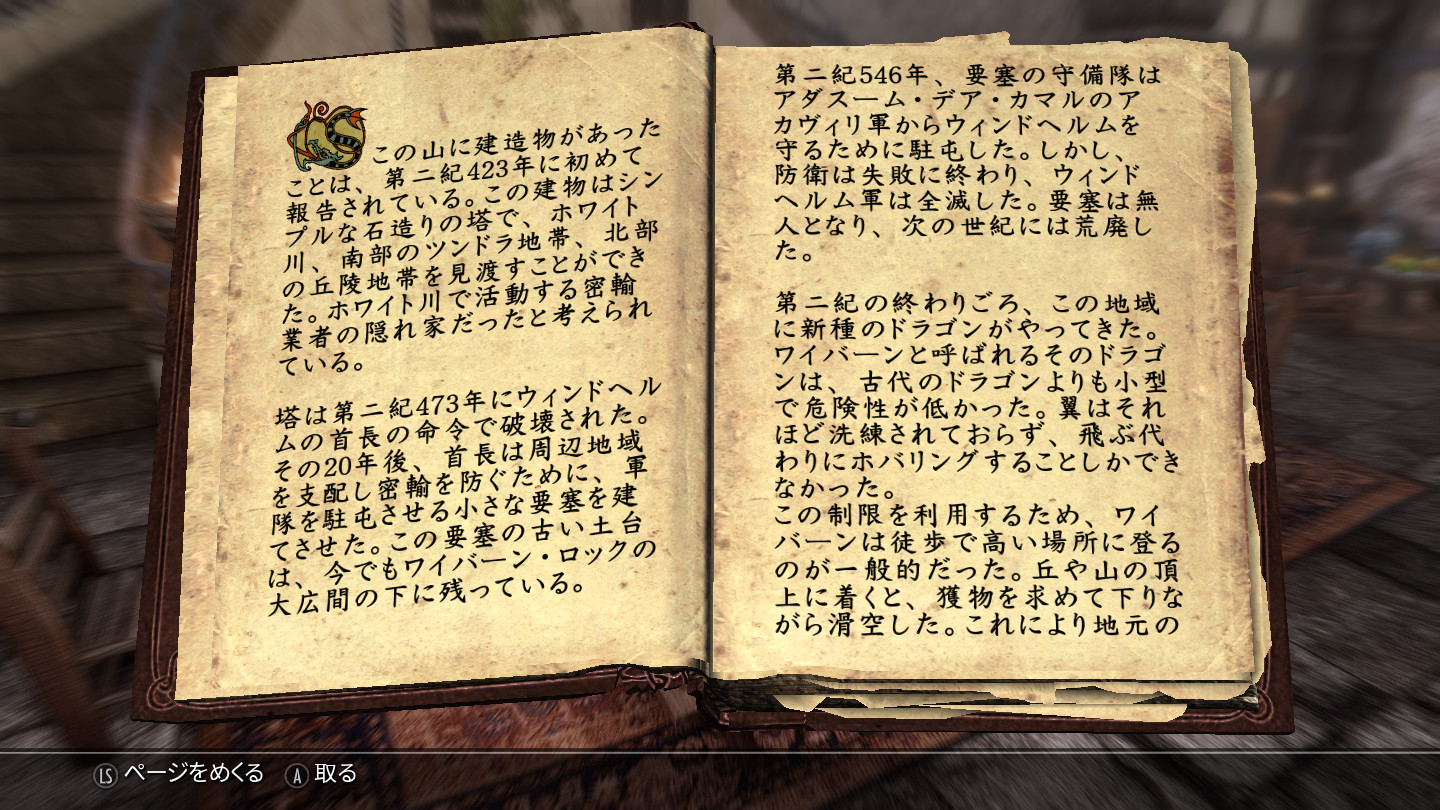 この山に建造物があった
ことは、第二紀423年に初めて
報告されている。この建物はシン
プルな石造りの塔で、ホワイト
川、南部のツンドラ地帯、北部
の丘陵地帯を見渡すことができ
た。ホワイト川で活動する密輸
業者の隠れ家だったと考えられ
ている。
塔は第二紀473年にウィンドヘル
ムの首長の命令で破壊された。
その20年後、首長は周辺地域
を支配し密輸を防ぐために、軍
隊を駐屯させる小さな要塞を建
てさせた。この要塞の古い土台
は、今でもワイバーン・ロックの
大広間の下に残っている。
第二紀546年、要塞の守備隊は
アダスーム・デア・カマルのア
カヴィリ軍からウィンドヘルムを
守るために駐屯した。しかし、
防衛は失敗に終わり、ウィンド
ヘルム軍は全滅した。要塞は無
人となり、次の世紀には荒廃し
た。
第二紀の終わりごろ、この地域
に新種のドラゴンがやってきた。
ワイバーンと呼ばれるそのドラゴ
ンは、古代のドラゴンよりも小型
で危険性が低かった。翼はそれ
ほど洗練されておらず、飛ぶ代
わりにホバリングすることしかでき
なかった。
この制限を利用するため、ワイ
バーンは徒歩で高い場所に登る
のが一般的だった。丘や山の頂
上に着くと、獲物を求めて下りな
がら滑空した。これにより地元の
LS ページをめくる A 取る